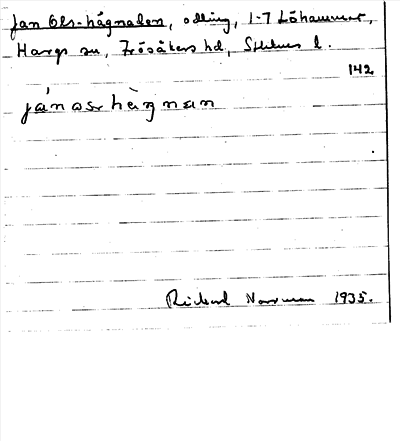 Jan Ols-hägnaden, odling, 1-7 Löhammar,
Hargs sn, Frösåkers hd, Sthlms l.
142
jánasr hægnan
Rickard Norrman 1935.